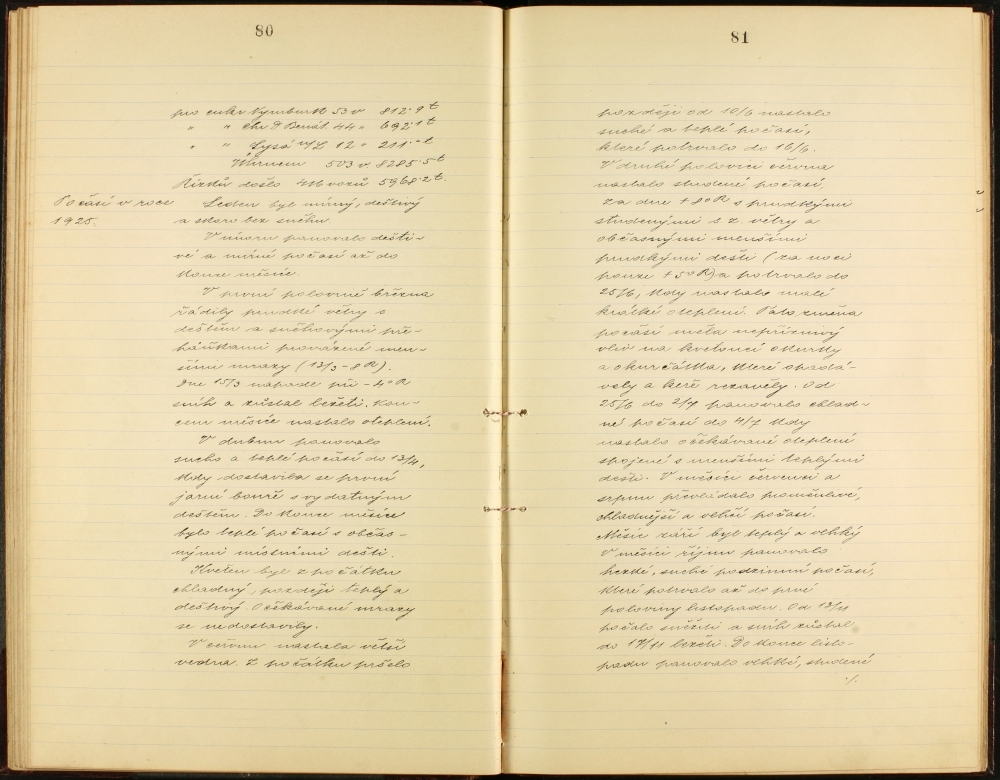 80
pro cukr Nymburk 53 v 812·9 t
" " chr. D Benát. 44 " 692·1 t
" " Lysá n/L 12 " 211·-t
Úhrnem 503 v. 8285·5 t
Řízků došlo 416 vozů 5968·2 t.
Počasí v roce
1925.
Leden byl mírný, deštivý
a skoro bez sněhu.
V únoru panovalo dešti-
vé a mírné počasí až do
konce měsíce.
V první polovině března
řádily prudké větry s
deštěm a sněhovými pře-
háňkami provázené men-
šími mrazy (13/3 - 8 R).
Dne 15/3 napadl při - 4° R
sníh a zůstal ležeti. Kon-
cem měsíce nastalo oteplení.
V dubnu panovalo
sucho a teplé počasí do 13/4,
kdy dostavila se první
jarní bouře s vydatným
deštěm. Do konce měsíce
bylo teplé počasí s občas-
nými místními dešti.
Květen byl z počátku
chladný, později teplý a
deštivý. Očekávané mrazy
se nedostavily.
V červnu nastala větší
vedra. Z počátku pršelo
81
později od 10/6 nastalo
suché a teplé počasí,
které potrvalo do 16/6.
V druhé polovici června
nastalo studené počasí,
za dne + 8° R s prudkými
studenými s z větry a
občasnými menšími
prudkými dešti (za noci
pouze + 5° R) a potrvalo do
25/6, kdy nastalo malé
krátké oteplení. Tato změna
počasí měla nepříznivý
vliv na kvetoucí okurky
a okurčátka, které opadá-
valy a keře rezavěly. Od
25/6 do 2/7 panovalo chlad-
né počasí do 4/7 kdy
nastalo očekávané oteplení
spojené s menšími teplými
dešti. V měsíci červenci a
srpnu převládalo pomušivé,
chladnější a vlhčí počasí.
Měsíc září byl teplý a vlhký
V měsíci říjnu panovalo
hezké, suché podzimní počasí,
které potrvalo až do prvé
poloviny listopadu. Od 13/11
počalo sněžiti a sníh zůstal
do 17/11 ležeti. Do konce listo-
padu panovalo vlhké, studené
·/.